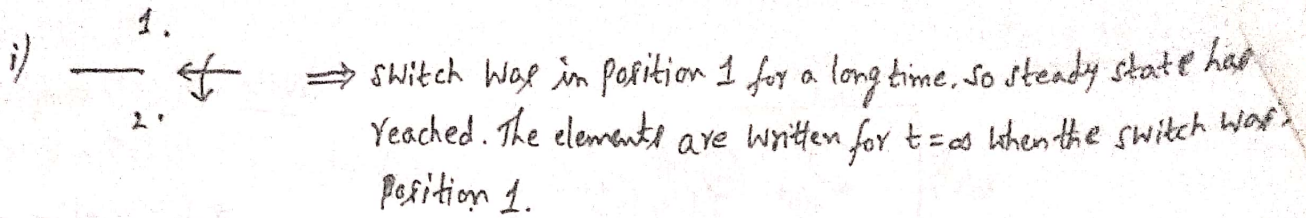 1.
i) ⇒ Switch was in position 1 for a long time. So steady state has
2.
reached. The elements are written for t=∞ when the switch was
position 1.